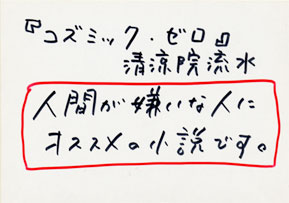 『コズミック・ゼロ』
清涼院流水
人間が嫌いな人に
オススメの小説です。